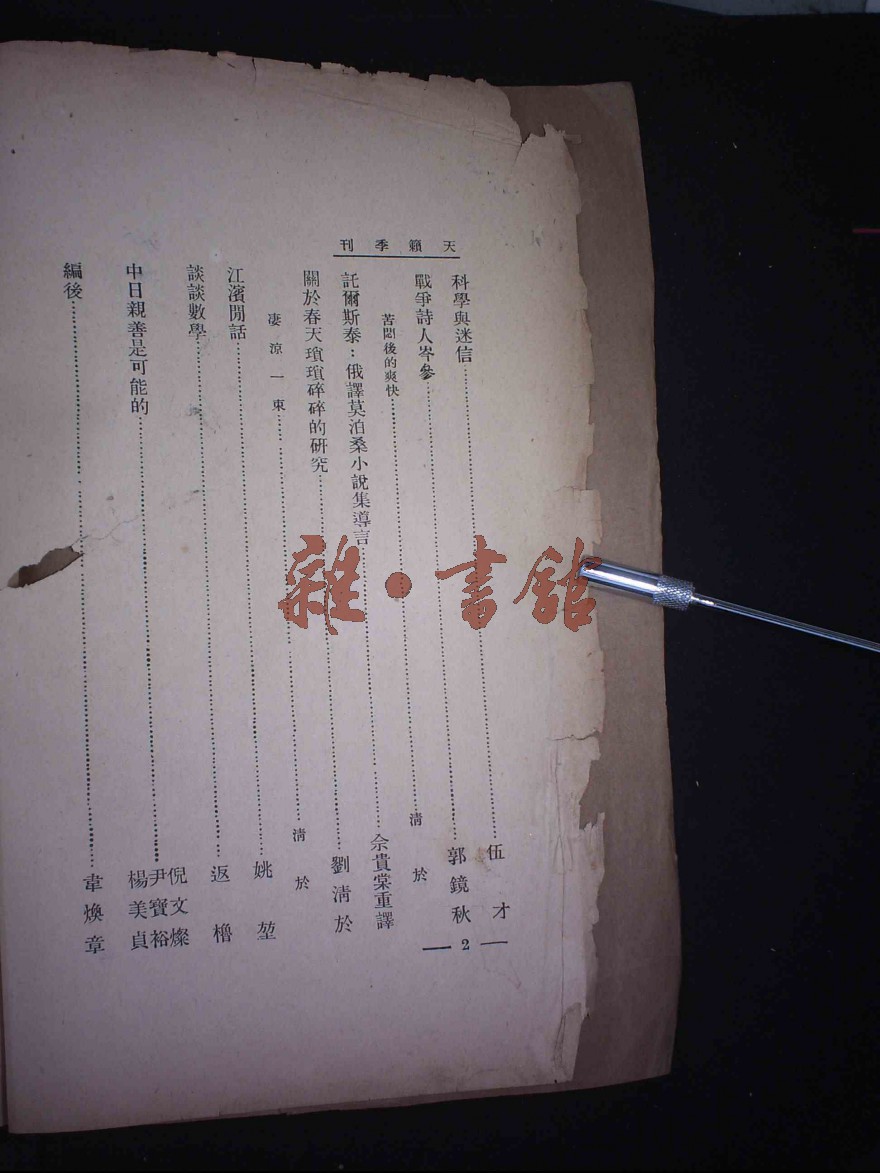 天籟季刊
科學與迷信……伍才
戰爭詩人岑參……郭鏡秋
苦悶後的爽快……清於
託爾斯泰：俄譯莫泊桑小說集導言……佘貴棠重譯
關於春天瑣瑣碎碎的研究……劉清於
淒涼一束……清於
江濱閒話……姚堃
談談數學……返櫓
中日親善是可能的……倪文燦 尹寶裕 楊美貞
編後……韋煥章
— 2 —
雜·書館